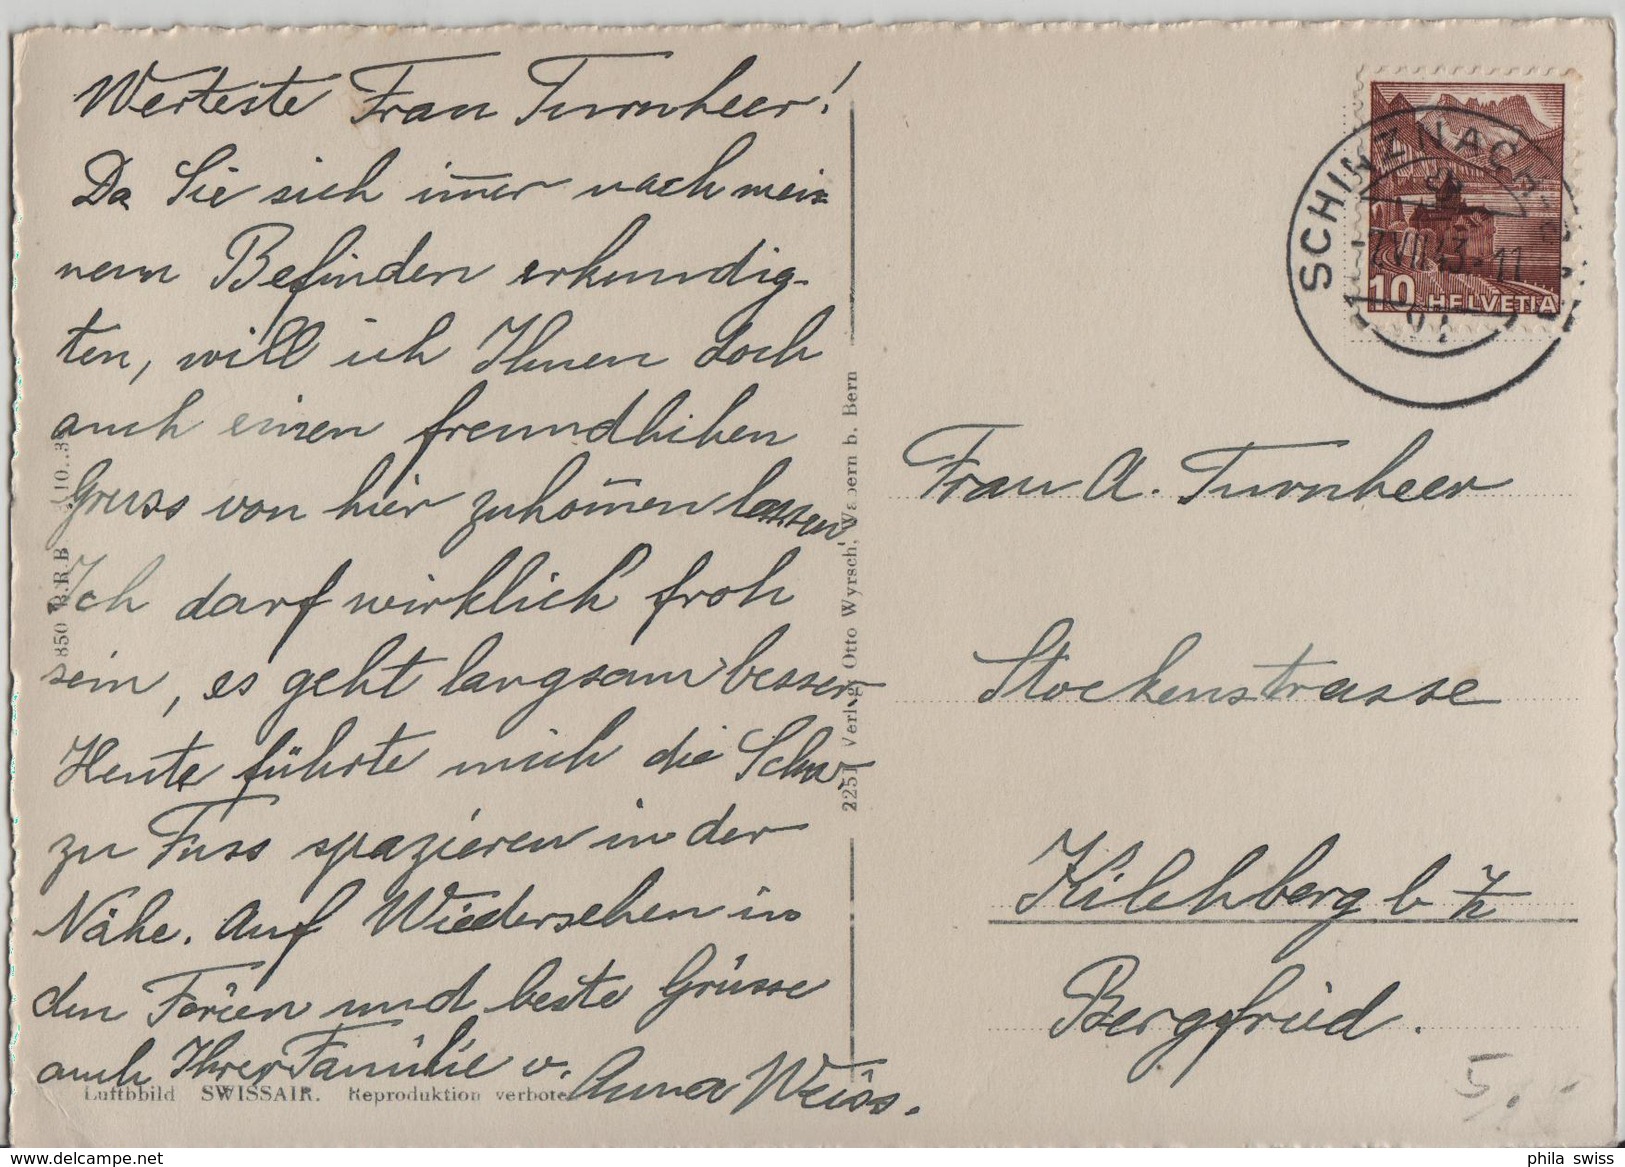 Werteste Frau Turnheer!
Da Sie sich im̄er nach mei=
nem Befinden erkundig-
ten, will ich Ihnen doch
auch einen freundlichen
Gruss von hier zukom̄en lassen.
Ich darf wirklich froh
sein, es geht langsam besser
Heute führte mich die Schw.
zu Fuss spazieren in der
Nähe. Auf Wiedersehen in
den Ferien und beste Grüsse
auch Ihrer Familie v. Anna Weiss.
Luftbbild SWISSAIR. Reproduktion verboten
850 B.R.B. (10..39
2251 Verlag: Otto Wyrsch, Wabern b. Bern
SCHINZNACH
VII.43-11
10 HELVETIA
Frau A. Turnheer
Stockenstrasse
Kilchberg b. Z/h
Bergfried.
5/.
phila swiss